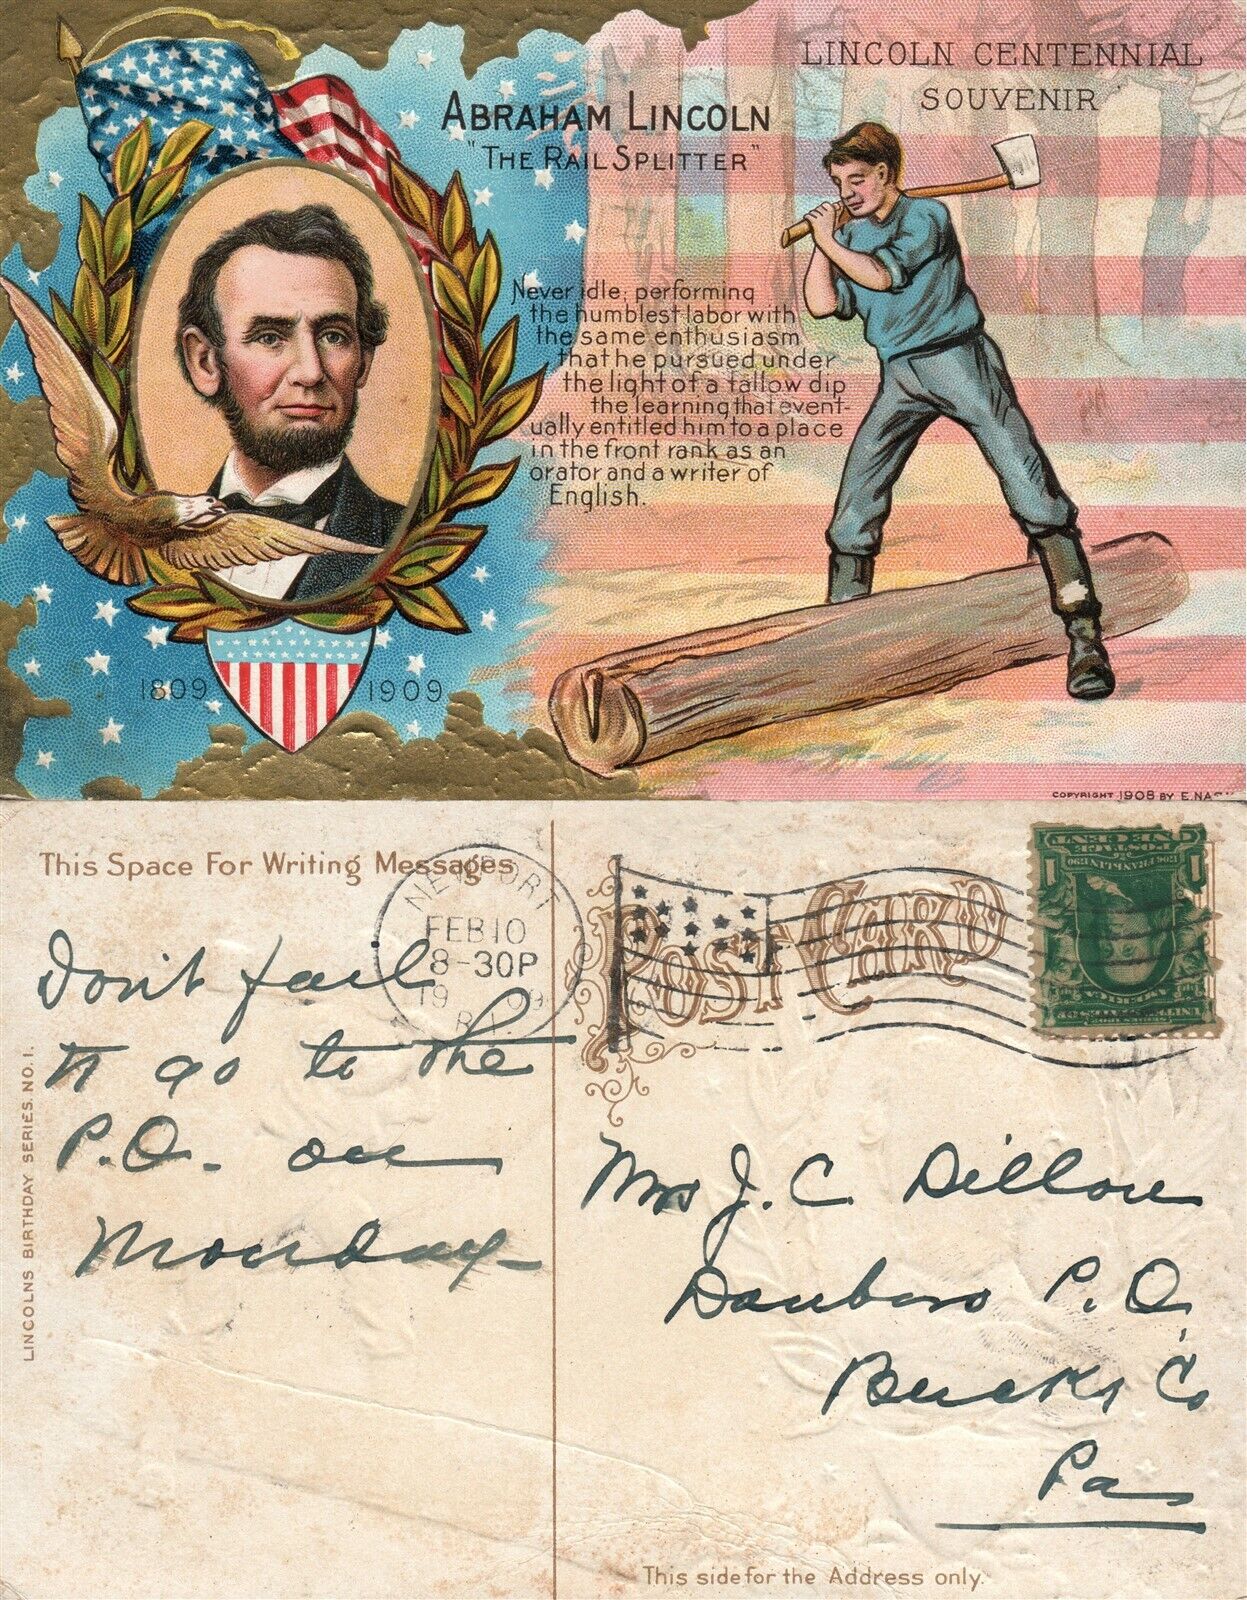 LINCOLN CENTENNIAL
SOUVENIR
ABRAHAM LINCOLN
"THE RAIL SPLITTER"
Never idle; performing
the humblest labor with
the same enthusiasm
that he pursued under
the light of a tallow dip
the learning that event-
ually entitled him to a place
in the front rank as an
orator and a writer of
English.
1809 1909
COPYRIGHT 1908 BY E. NASH
This Space For Writing Messages
NEWPORT
FEB 10
8-30P
1909
R.I.
POST CARD
Don't fail
to go to the
P.O. on
Monday
Mrs J. C. Dillon
Danboro P.O.
Bucks Co
Pa
LINCOLNS BIRTHDAY SERIES. NO. 1.
This side for the Address only.